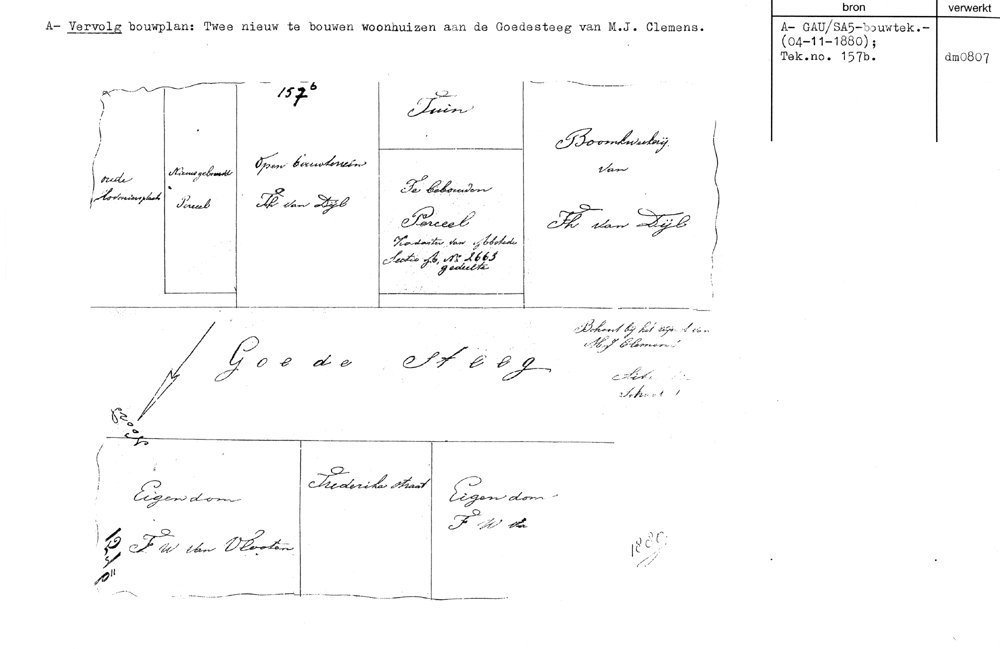 A- Vervolg bouwplan: Twee nieuw te bouwen woonhuizen aan de Goedesteeg van M.J. Clemens.
bron
verwerkt
A- GAU/SA5-bouwtek.-
(04-11-1880);
Tek.no. 157b.
dm0807
157b
oude
Nieuwgebouwd
Perceel
Open bouwterrein
Th van Dijl
Tuin
Te bebouwen
Perceel
Kadaster van Abstede
Sectie No 2663
gedeelte
Boomkweekerij
van
Th van Dijl
Goede Steeg
Noord
Behoort bij het van
M J Clemens
Schaal
Eigendom
F W van Vlooten
Frederika straat
Eigendom
F W
1880